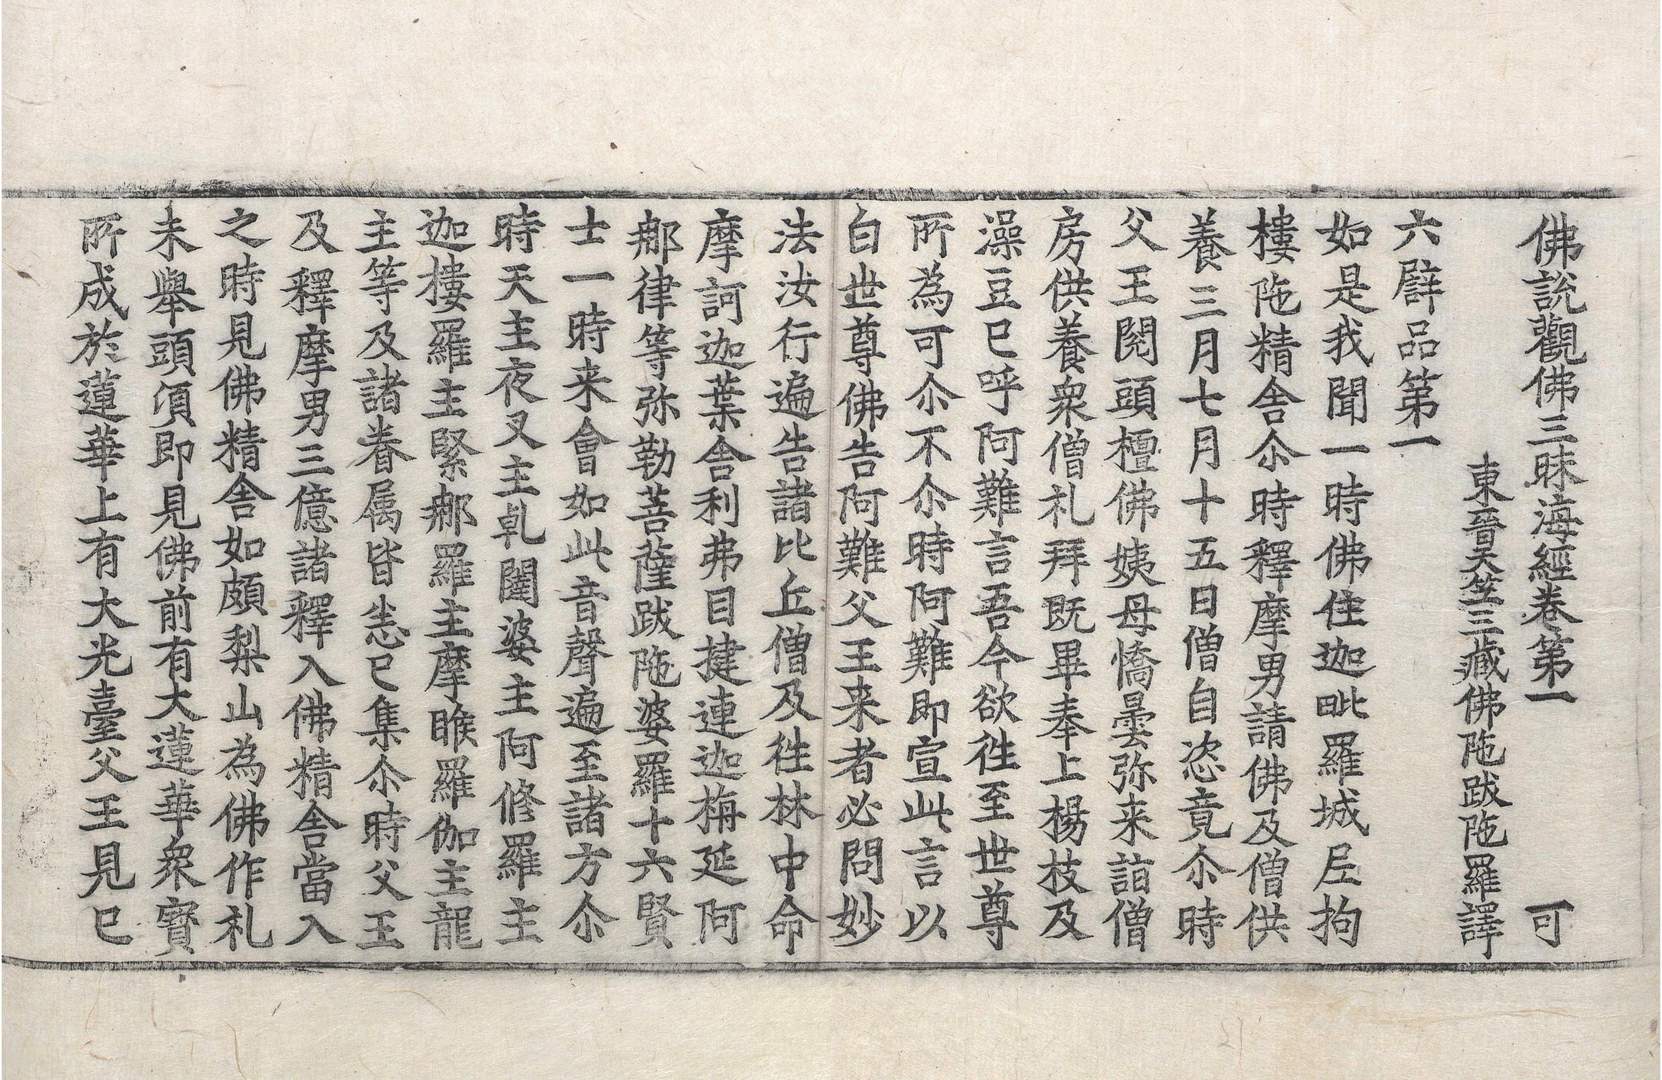 佛說觀佛三昧海經卷第一　可
東晉天竺三藏佛陁跋陁羅譯
六辟品第一
如是我聞一時佛住迦毗羅城尼拘
樓陁精舍尒時釋摩男請佛及僧供
養三月七月十五日僧自恣竟尒時
父王閱頭檀佛姨母憍曇弥来詣僧
房供養衆僧礼拜既畢奉上楊枝及
澡豆已呼阿難言吾今欲徃至世尊
所為可尒不尒時阿難即宣此言以
白世尊佛告阿難父王来者必問妙
法汝行遍告諸比丘僧及徃林中命
摩訶迦葉舍利弗目揵連迦旃延阿
那律等弥勒菩薩跋陁婆羅十六賢
士一時来會如此音聲遍至諸方尒
時天主夜叉主乹闥婆主阿修羅主
迦樓羅主緊那羅主摩睺羅伽主龍
主等及諸眷属皆悉已集尒時父王
及釋摩男三億諸釋入佛精舍當入
之時見佛精舍如頗梨山為佛作礼
未舉頭湏即見佛前有大蓮華衆寳
所成於蓮華上有大光臺父王見已